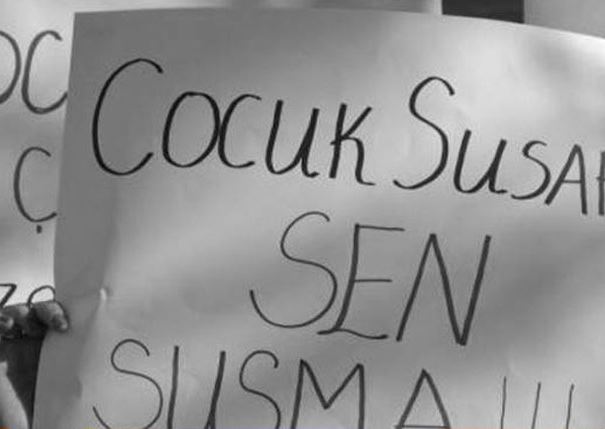 COCUK SUSAR
SEN
SUSMA!!!